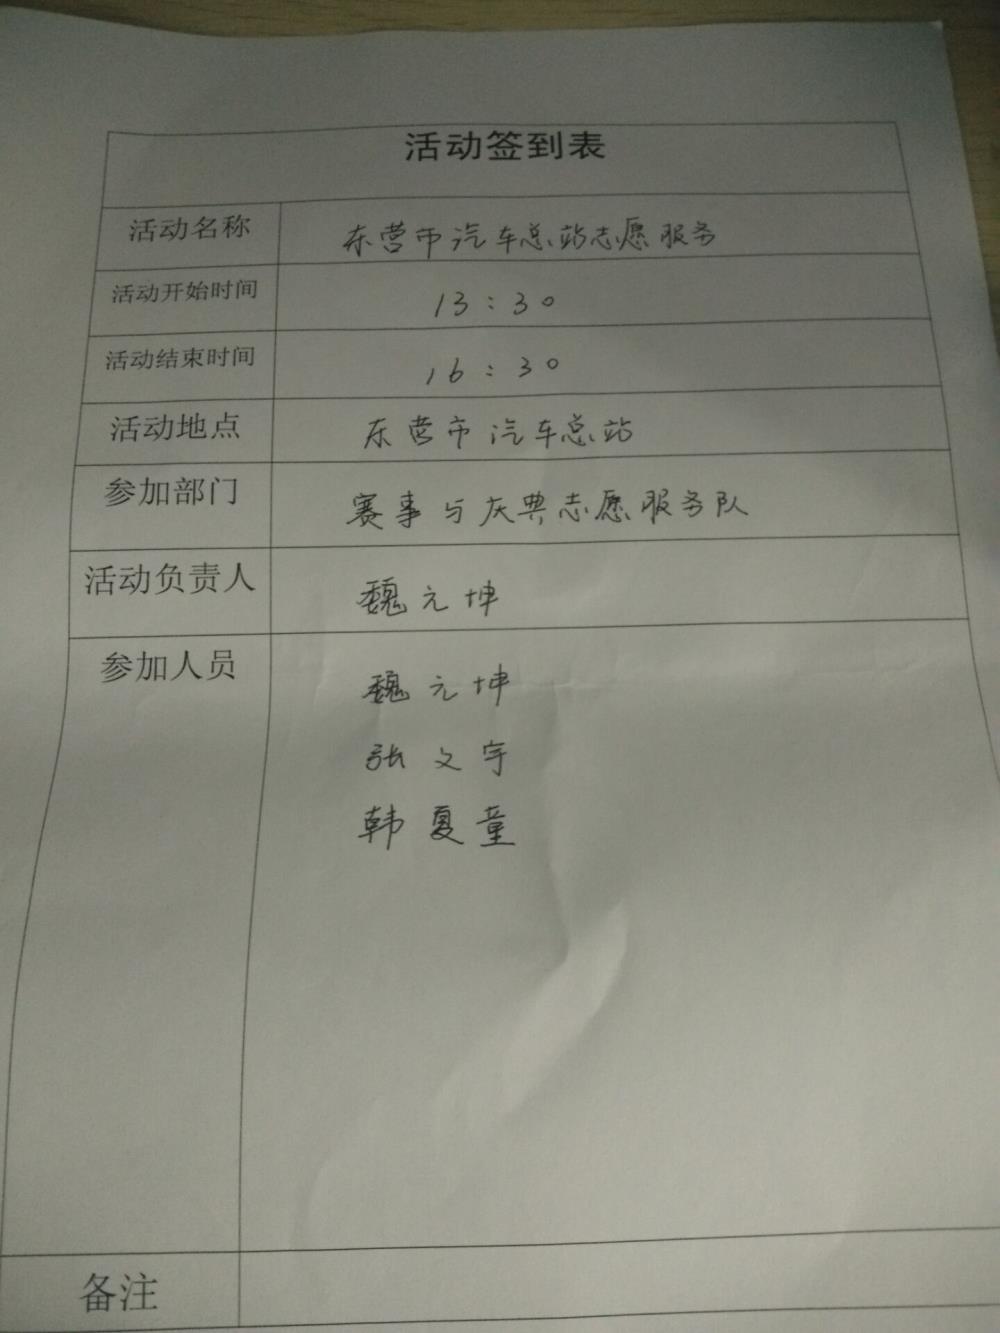 活动签到表
活动名称 东营市汽车总站志愿服务
活动开始时间 13:30
活动结束时间 16:30
活动地点 东营市汽车总站
参加部门 赛事与庆典志愿服务队
活动负责人 魏元坤
参加人员 魏元坤
张文宇
韩夏童
备注